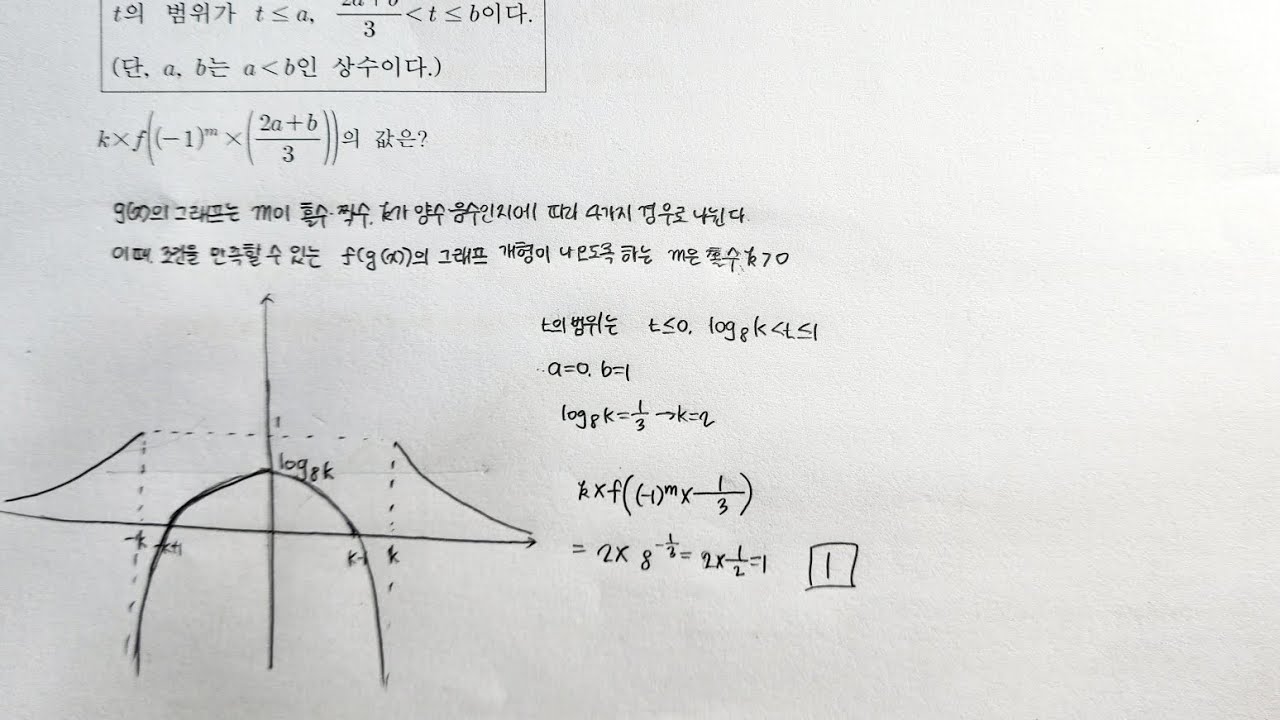 t의 범위가 t≤a, (2a+b)/3<t≤b이다.
(단, a, b는 a<b인 상수이다.)
k×f((-1)^m×((2a+b)/3))의 값은?
g(x)의 그래프는 m이 홀수·짝수, k가 양수·음수인지에 따라 4가지 경우로 나뉜다.
이때, 조건을 만족할 수 있는 f(g(x))의 그래프 개형이 나오도록 하는 m은 홀수, k>0
t의 범위는 t≤0, log₈k<t≤1
∴a=0, b=1
log₈k=1/3→k=2
k×f((-1)^m×1/3)
=2×8^(-1/3)=2×1/2=1 1
1
log₈k
-k -k+1 k-1 k